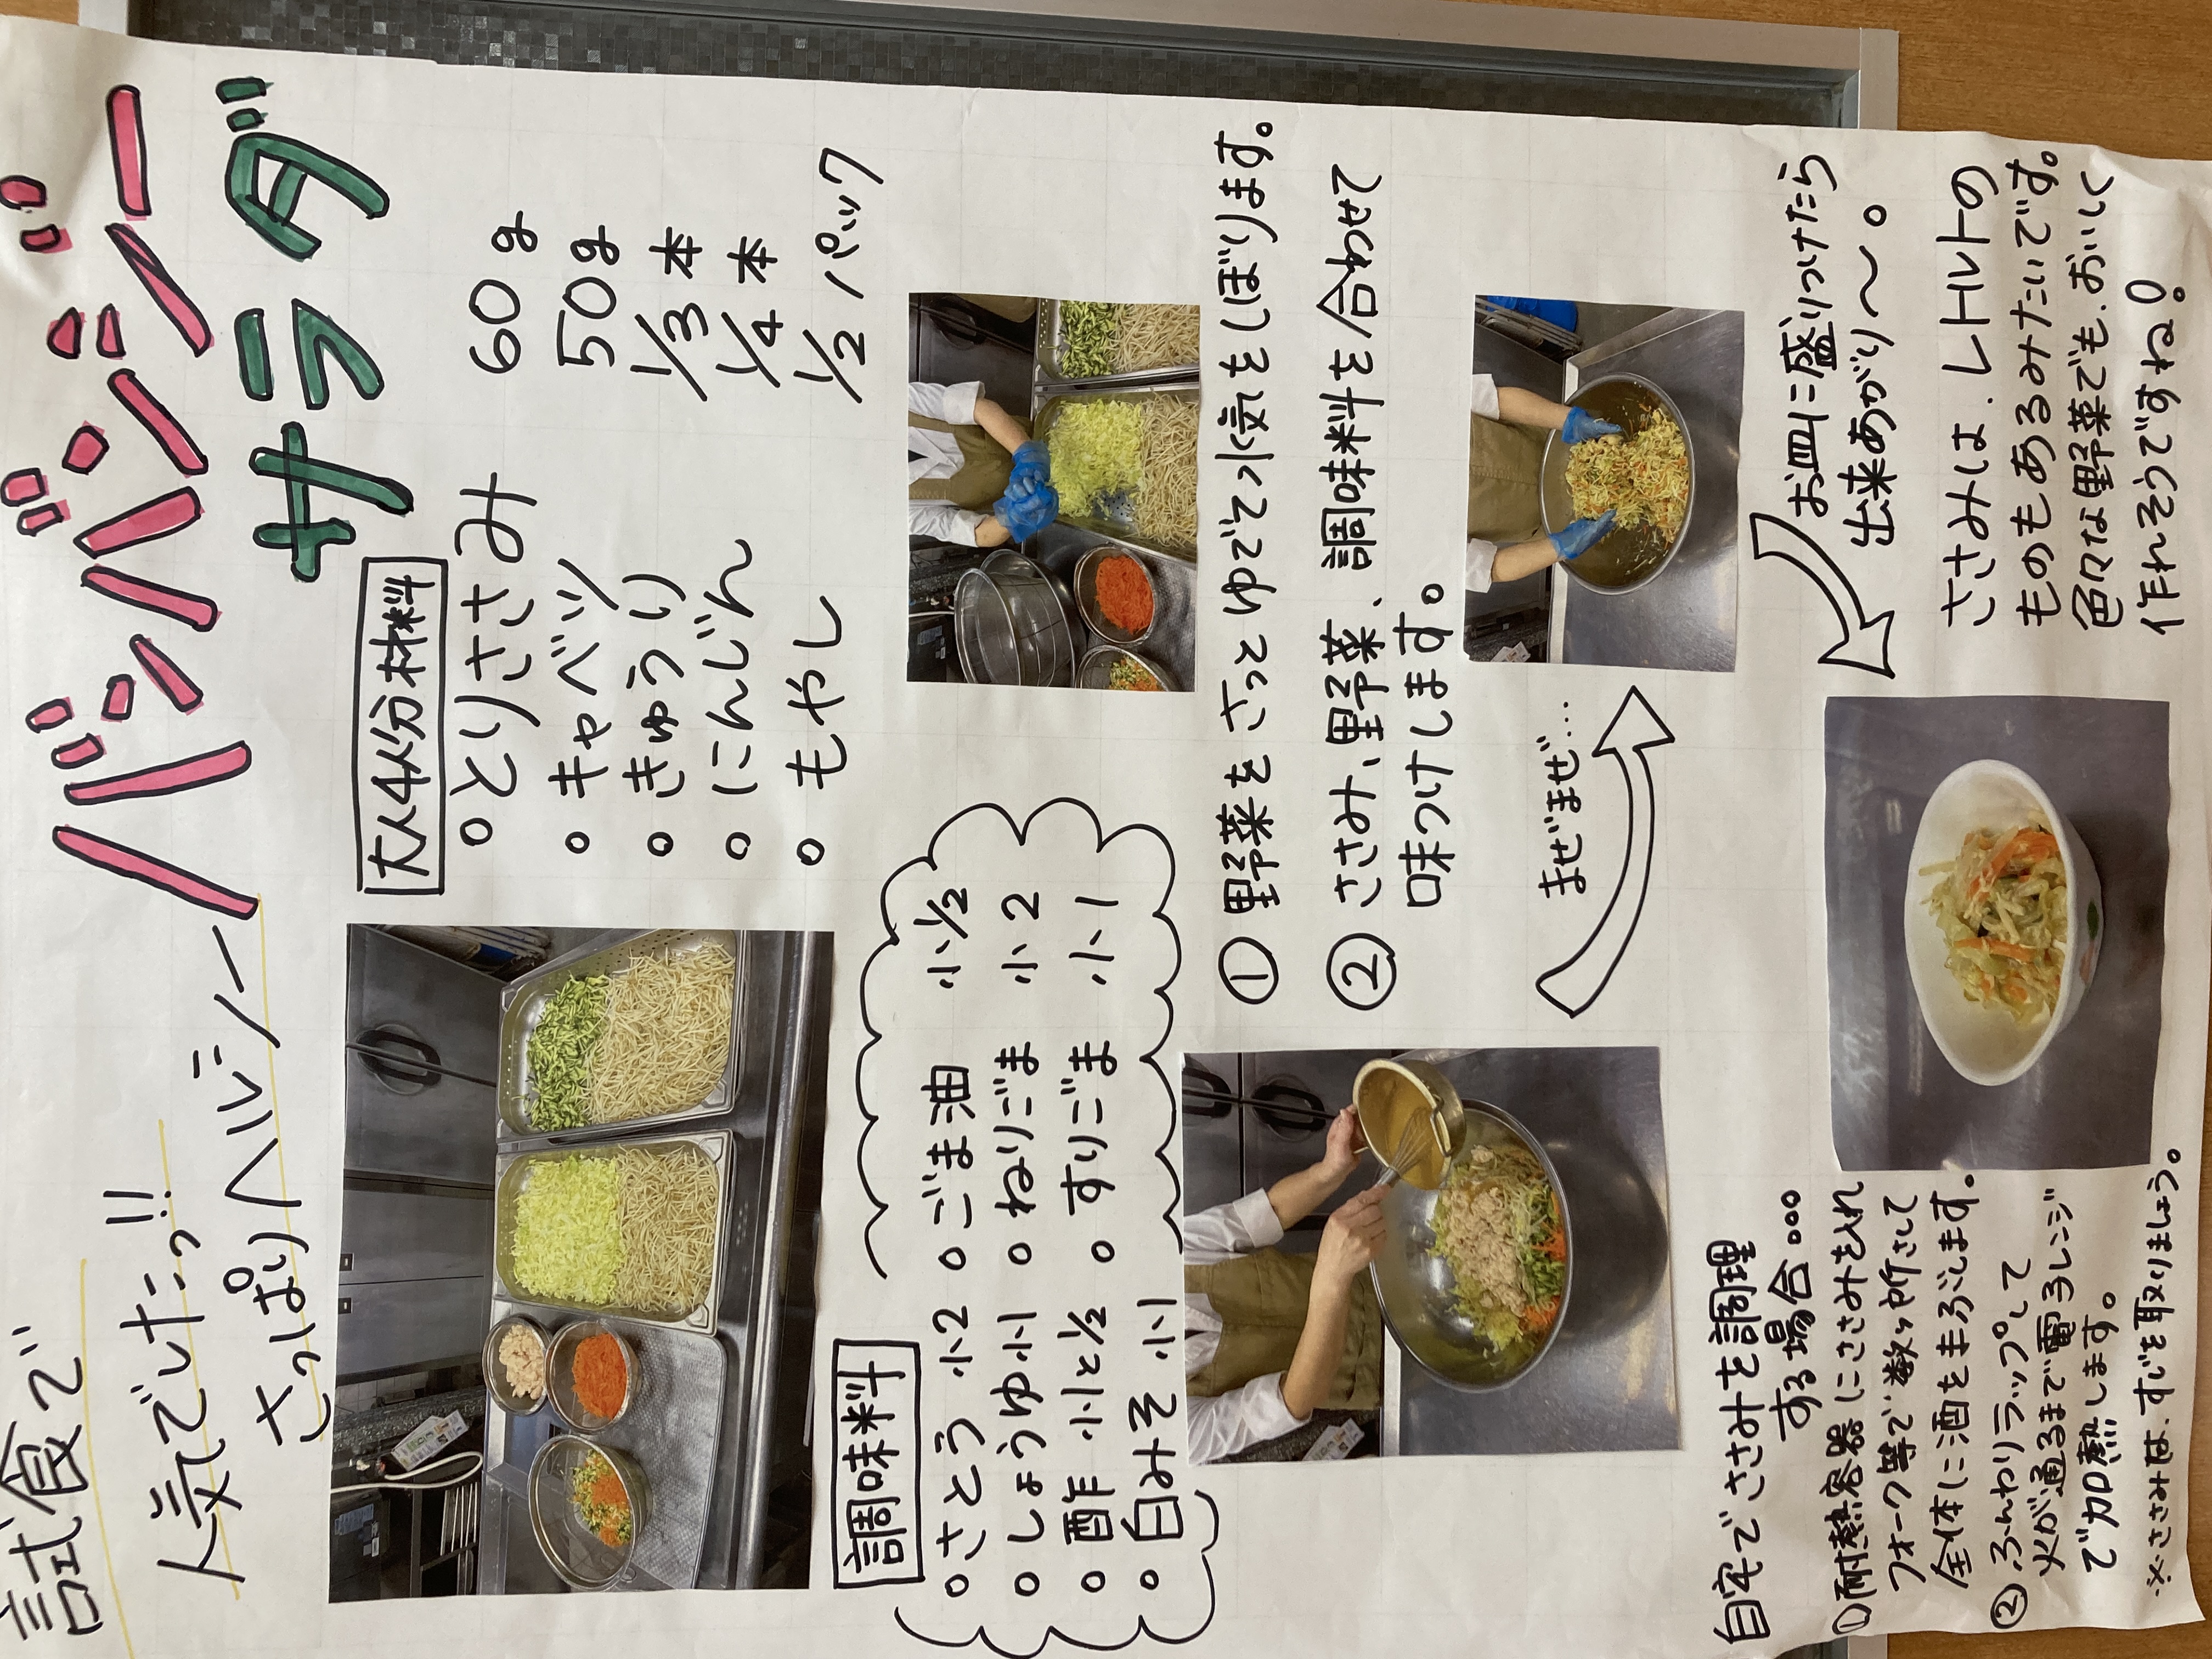 試食で
人気でしたっ!!
さっぱりヘルシー
バンバンジー
サラダ
大人4人分材料
○とりささみ 60g
○キャベツ 50g
○きゅうり 1/3本
○にんじん 1/4本
○もやし 1/2パック
調味料
○さとう 小2
○しょうゆ 小1
○酢 小1と1/2
○白みそ 小1
○ごま油 小1/2
○ねりごま 小2
○すりごま 小1
①野菜をさっとゆでて水気をしぼります。
②ささみ、野菜、調味料を合わせて
味つけします。
まぜまぜ…
お皿に盛りつけたら
出来あがり〜。
自宅でささみを調理
する場合。。。
①耐熱容器にささみを入れ
フォーク等で数ヶ所さして
全体に酒をまぶします。
②ふんわりラップして
火が通るまで電子レンジ
で加熱します。
※ささみは、すじを取りましょう。
ささみは、レトルトの
ものもあるみたいです。
色々な野菜でも、おいしく
作れそうですね!